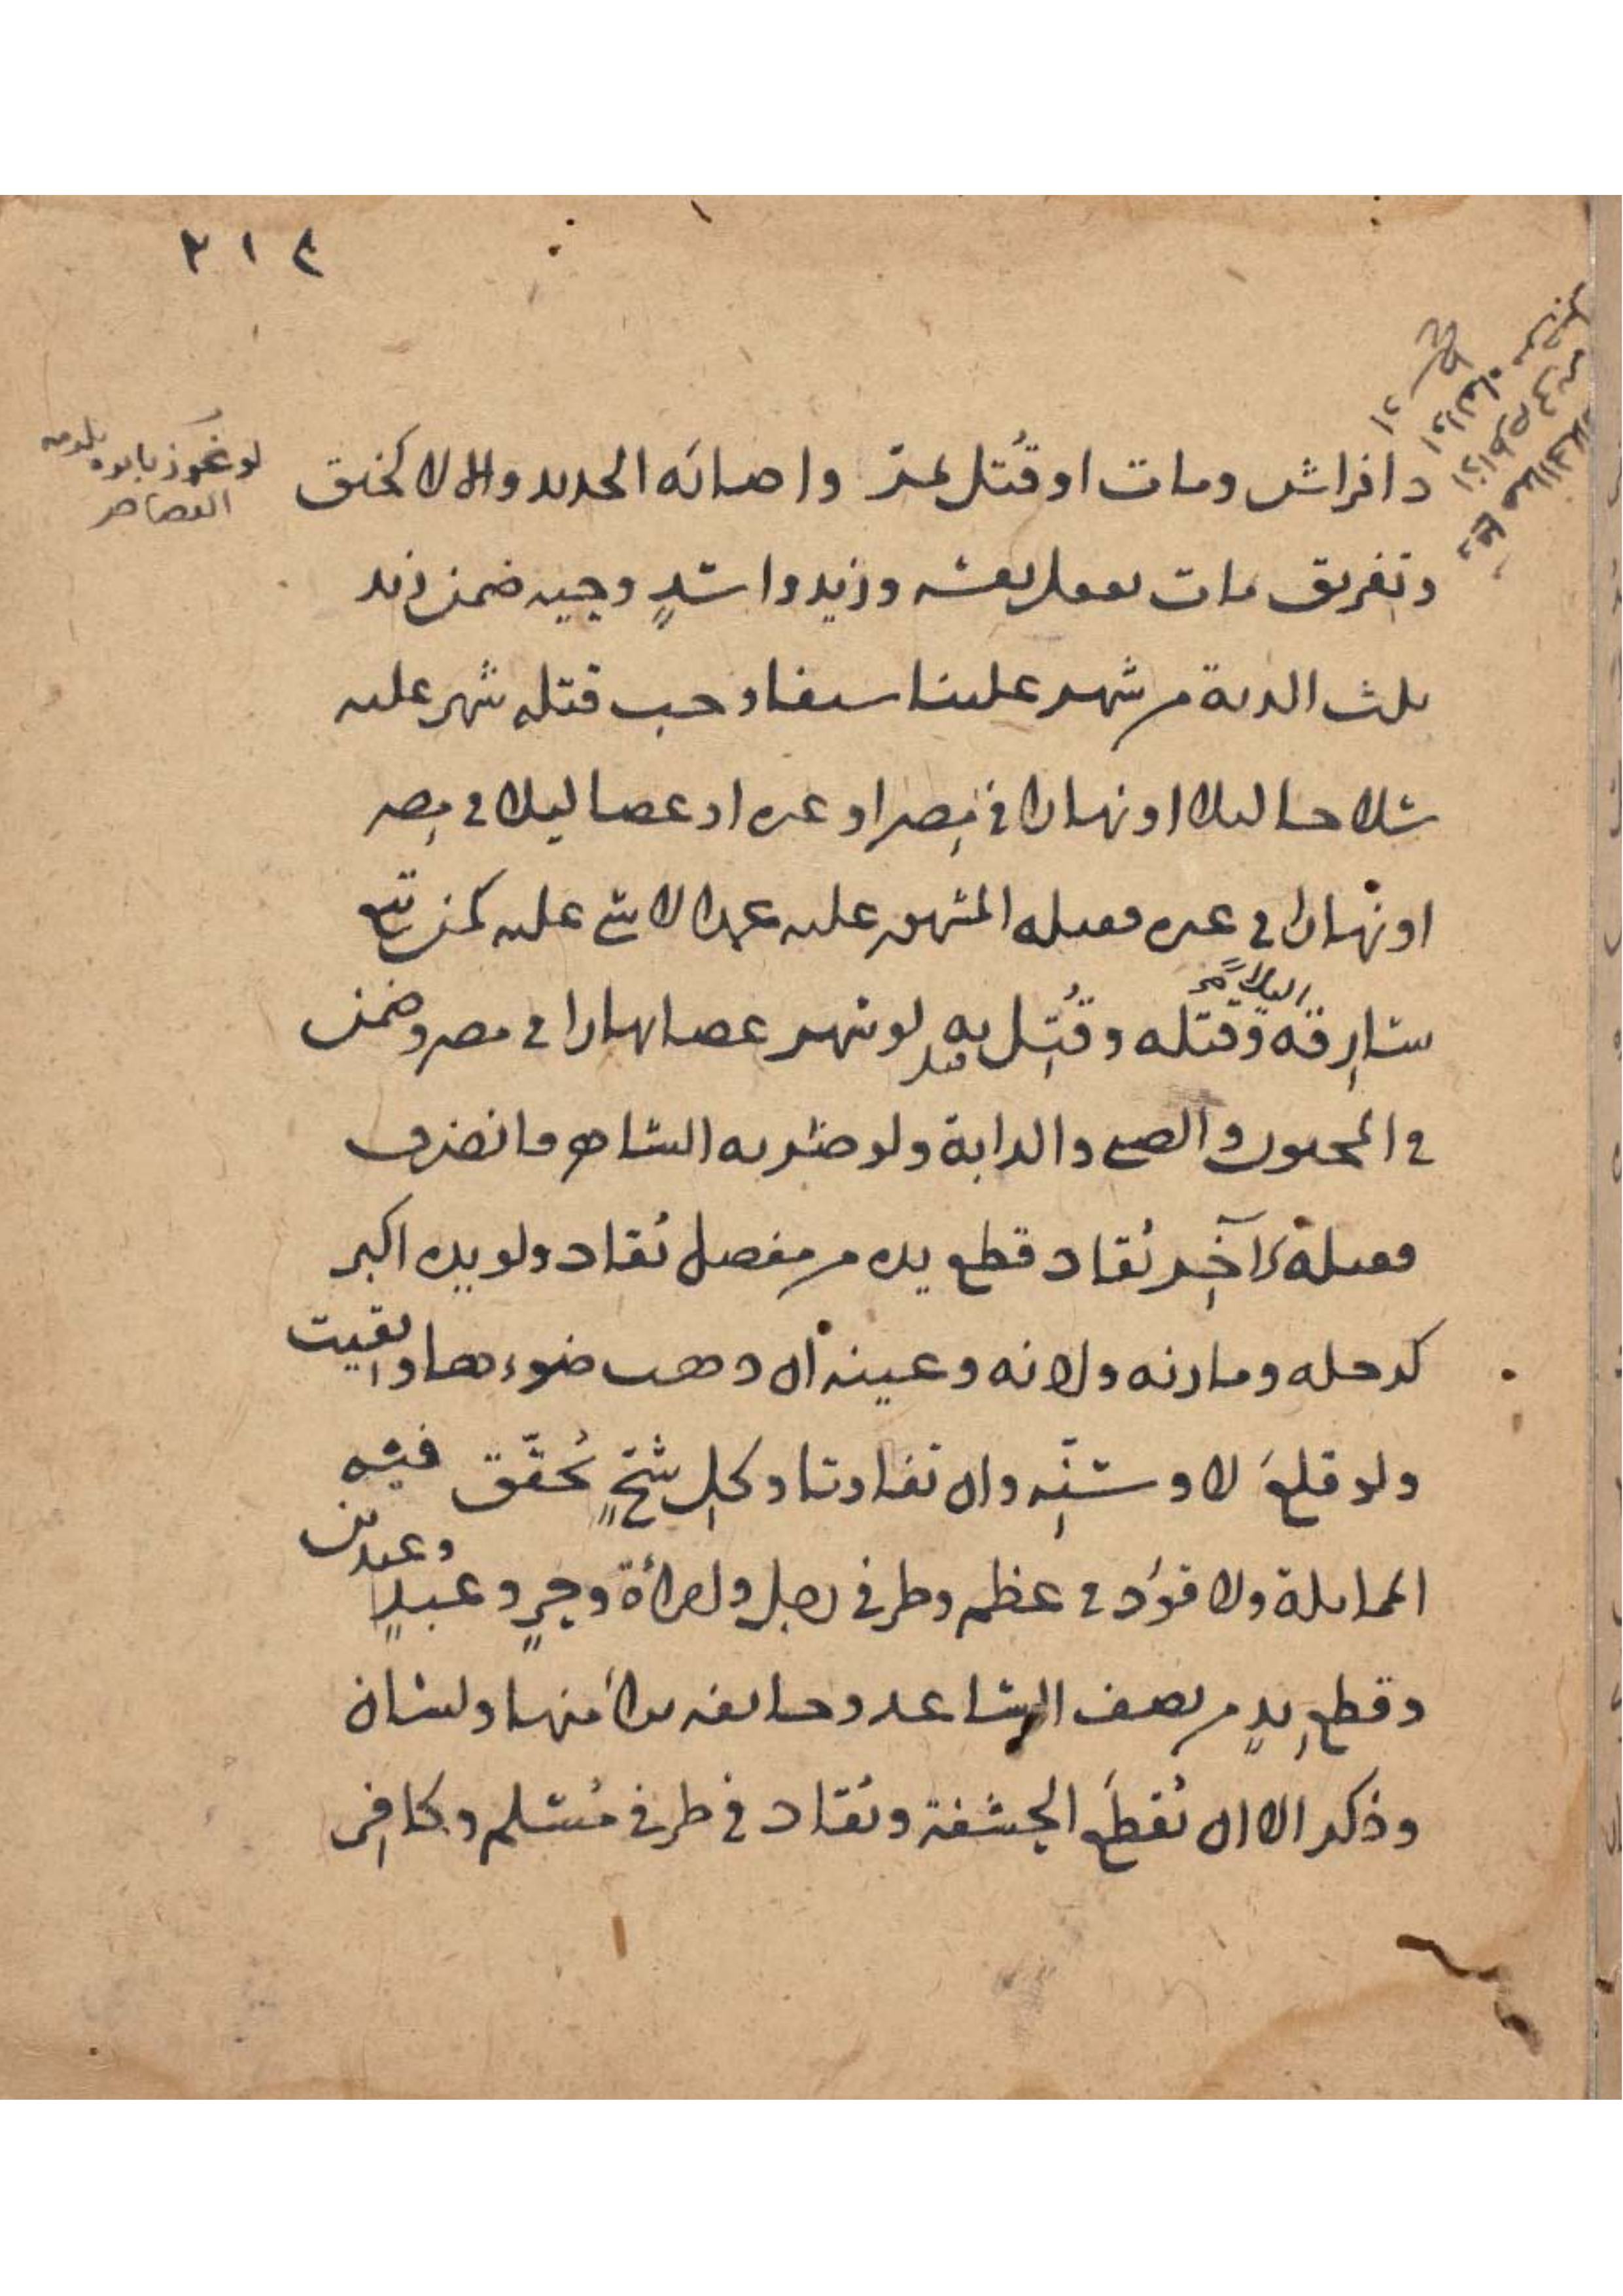 ٢١٤
ذا فراش ومات او قُتل بمَرّ واصابَه الحديد والا لا كخنق
لو بكوز
القصاص
وتغريق مات بفعل نفسه وزيد واسَدٍ وحية ضمن زيد
ثلث الدية من شهر علينا سيفا وجب قتله شهر عليه
سلاحا ليلا او نهارا في مصر او غيره او عصا ليلا في مصر
او نهارا في غيره فقتله المشهور عليه عمدا لا شئ عليه كمن تبع
سارقه وقتله وقُتِل به لو شهر عصا نهارا في مصر وضمن
ليلا
في المجنون والصبي والدابة ولو ضربه الشاهر فانصرف
فقتلهُ آخِر يُقاد قطع يده من مفصل يُقاد ولو يده اكبر
كرجله ومارنه واذنه وعينه ان ذهب ضوءها وبقيت
ولو قلعَ لا وسِنّه وان تفاوتا وكلِ شَجٍّ يُحقّق فيه
المماثلة ولا قوَد في عظم وطرفي رجل وامرأة وحرٍ وعبدٍ
وعبدين
وقطعِ يدٍ من نصف الساعد وجائفه برأ منها ولسان
وذكر الا ان تُقطَع الحشفة ويُقاد في طرفي مُسلم وكافِر